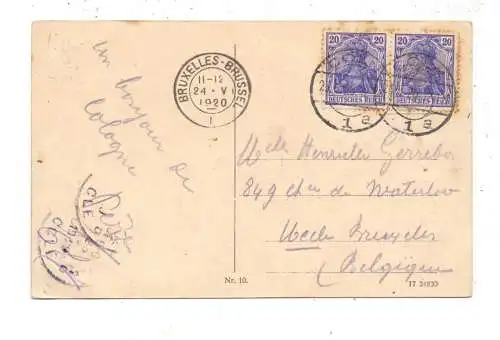 un bonjour de
Cologne
BRUXELLES-BRUSSEL
11-12
24 · V
1920
1
20 20
20 20
DEUTSCHES REICH
DEUTSCHES REICH
1a
1a
Henriette
849 ch de Waterloo
Uccle Bruxelles
(Belgique)
Nr. 10.
17 24833